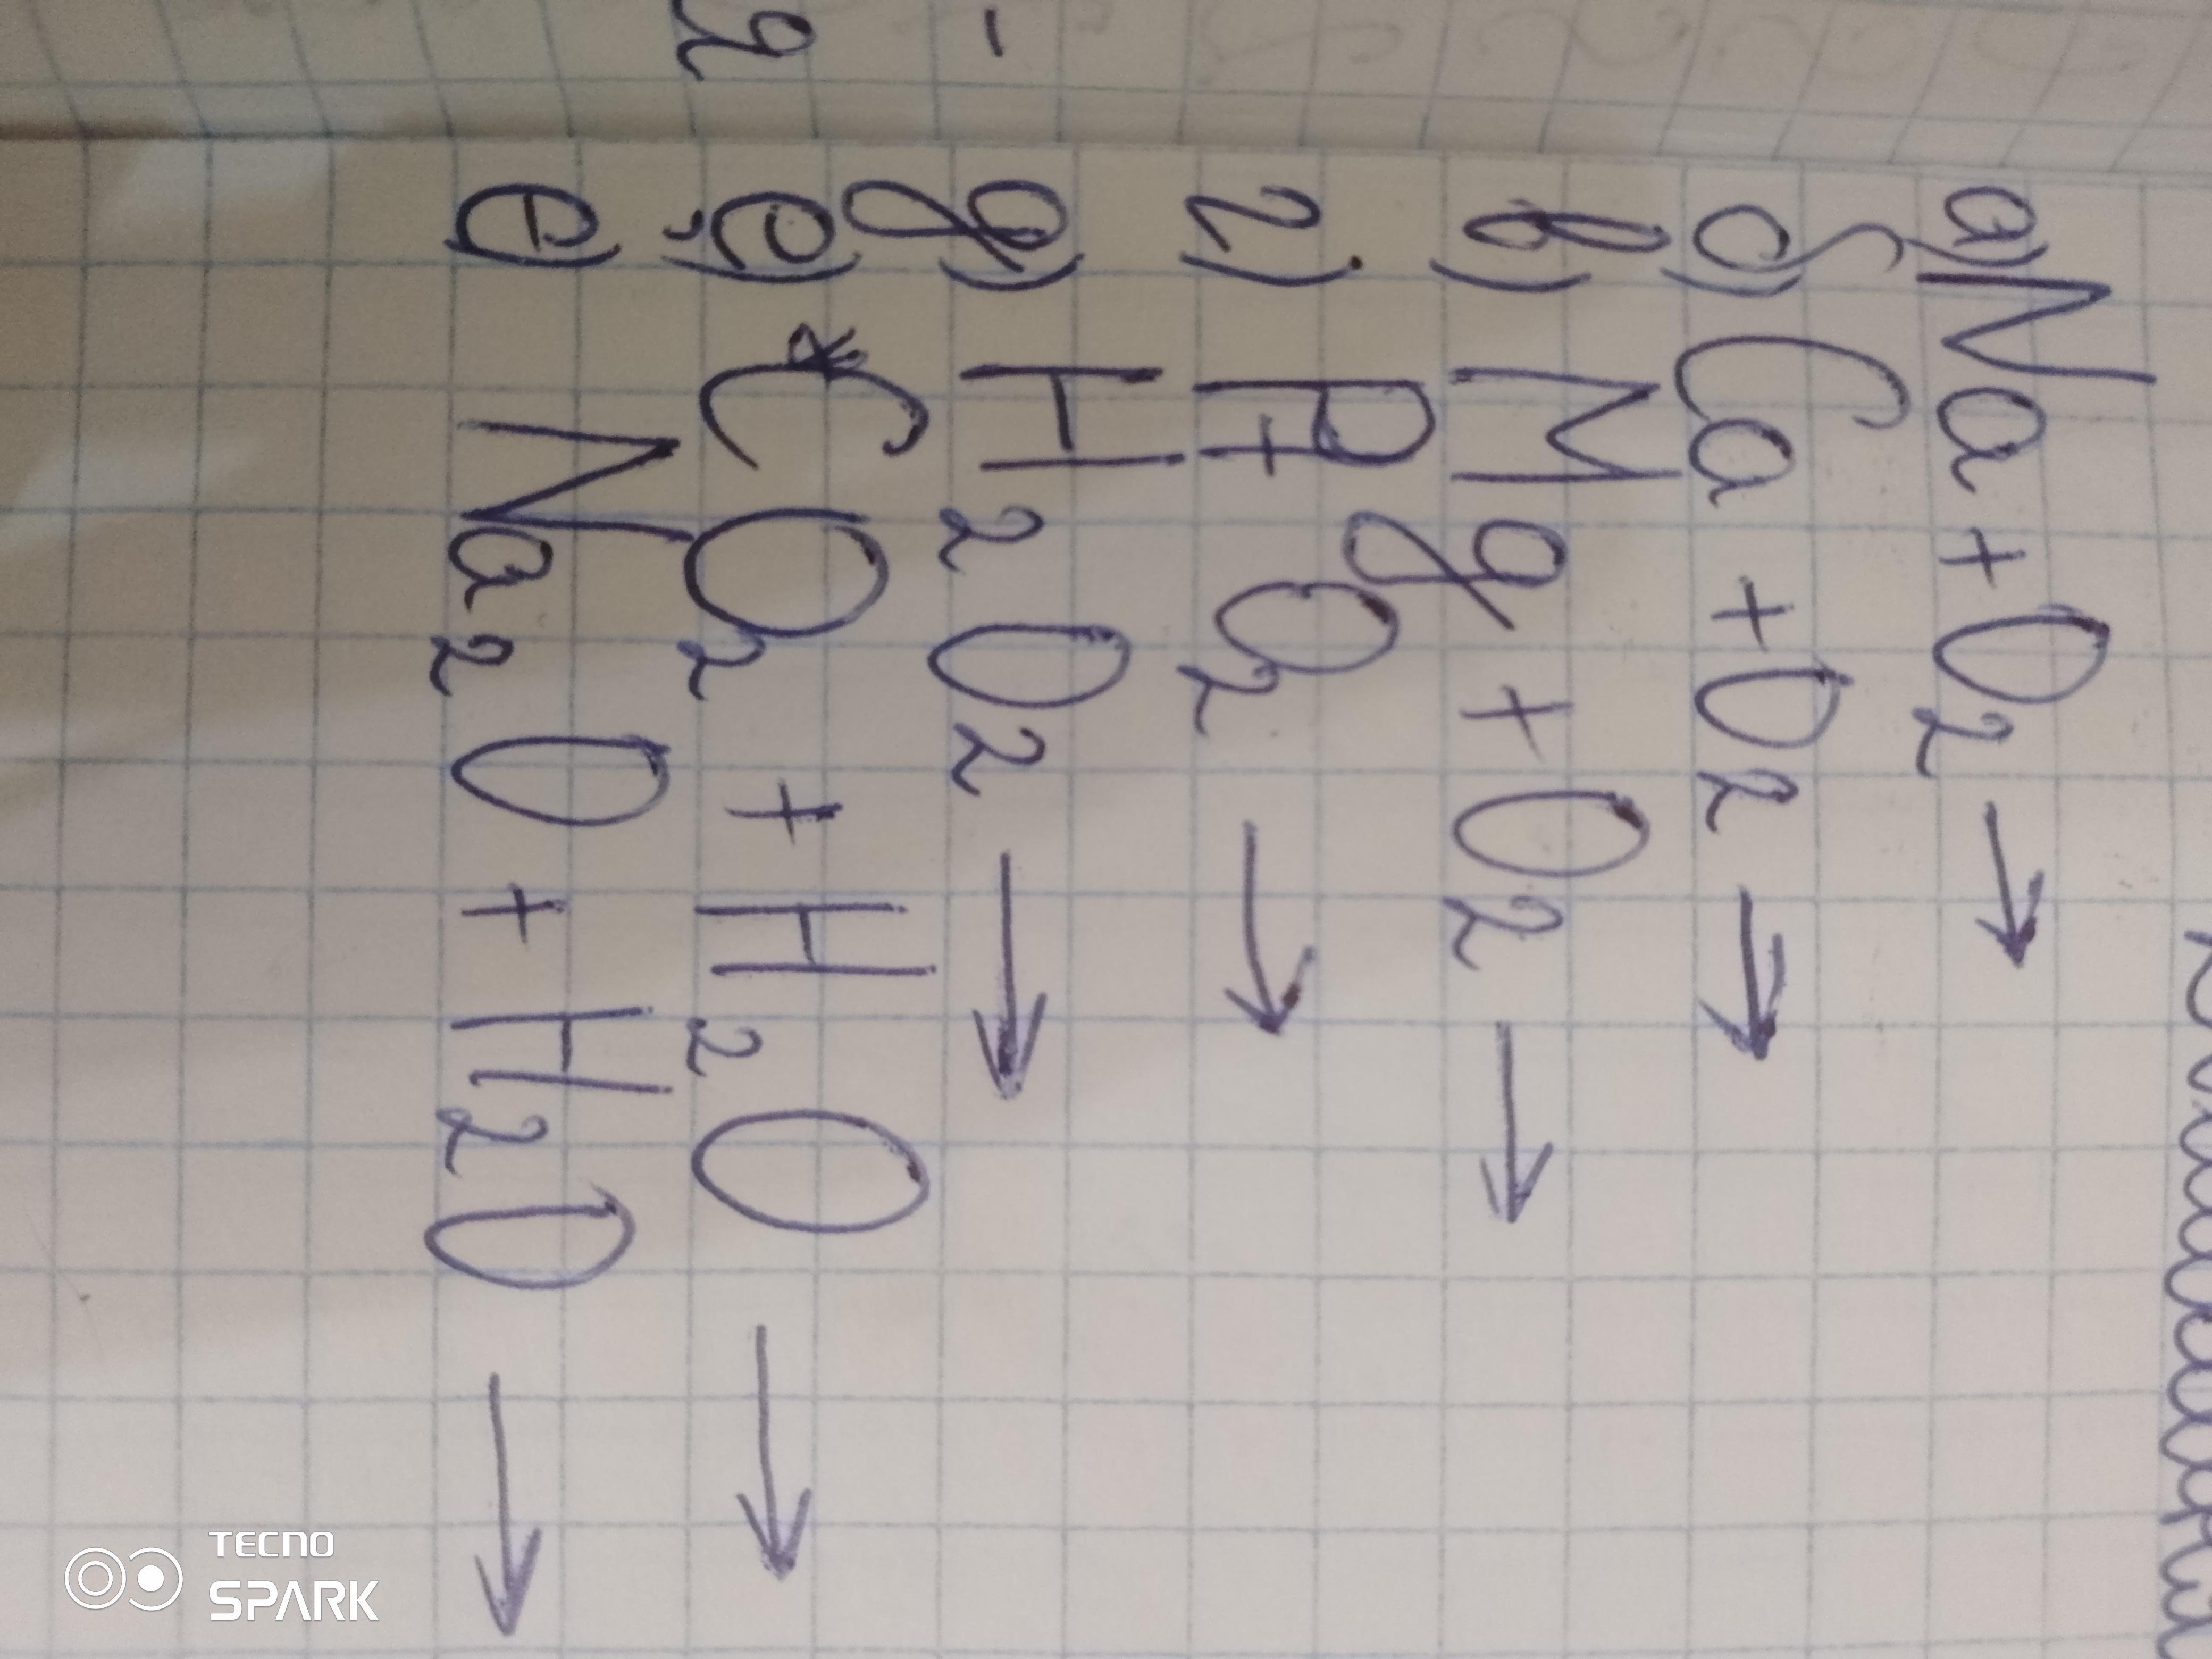 а) Na + O2 →
б) Ca + O2 →
в) Mg + O2 →
г) P + O2 →
д) H2O2 →
ё) CO2 + H2O →
е) Na2O + H2O →
TECNO
SPARK